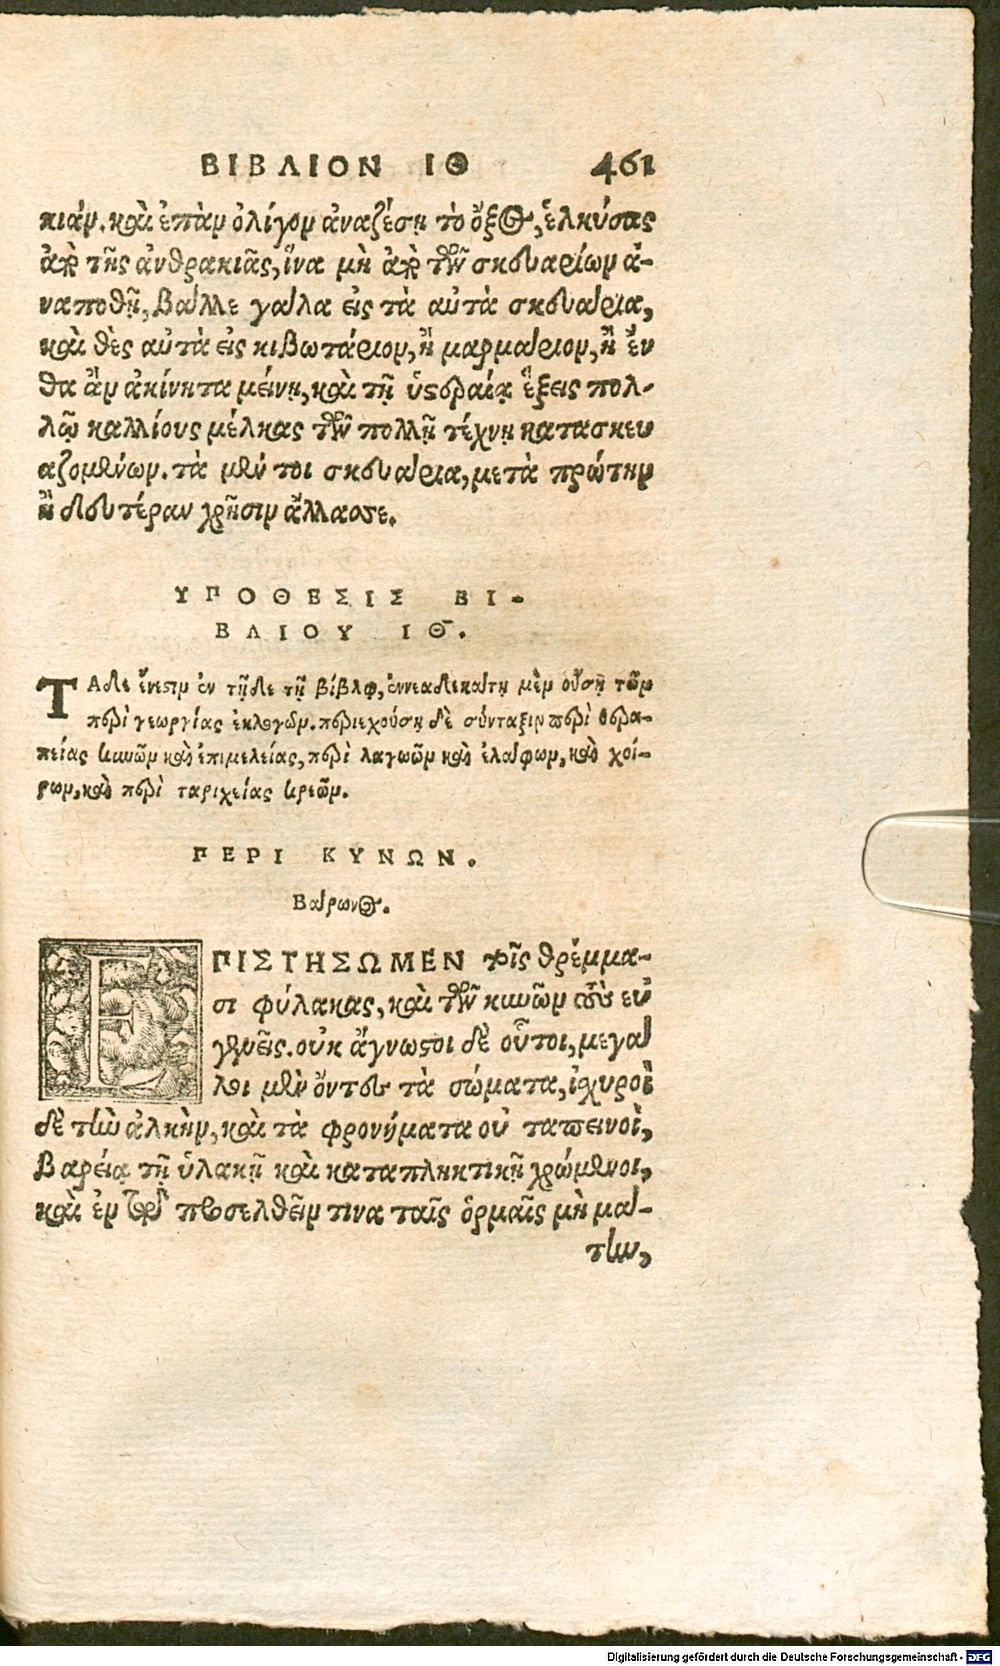 ΒΙΒΛΙΟΝ ΙΘ 461
κιάν. καὶ ἐπὰν ὀλίγον ἀναζέσῃ τὸ ὄξος, ἑλκύσας
ἀπὸ τῆς ἀνθρακιᾶς, ἵνα μὴ ἀπὸ τῶν σκουαρίων ἀ-
ναποθῇ, βάλλε γάλα εἰς τὰ αὐτὰ σκουάρια,
καὶ θὲς αὐτὰ εἰς κιβωτάριον, ἢ μαρμάριον, ἢ ἔν
θα ἂν ἀκίνητα μείνῃ, καὶ τῇ ὑστεραίᾳ ἕξεις πολ-
λῷ καλλίους μέλκας τῶν πολλῇ τέχνῃ κατασκευ
αζομένων. τὰ μέν τοι σκουάρια, μετὰ πρώτην
ἢ δευτέραν χρῆσιν ἄλλασσε.
ΥΠΟΘΕΣΙΣ ΒΙ-
ΒΛΙΟΥ ΙΘ.
ΤΑδε ἔνεστιν ἐν τῇδε τῇ βίβλῳ, ἐννεακαιδεκάτῃ μὲν οὔσῃ τῶν
περὶ γεωργίας ἐκλογῶν. περιεχούσῃ δὲ σύνταξιν περὶ θερα-
πείας κυνῶν καὶ ἐπιμελείας, περὶ λαγωῶν καὶ ἐλάφων, καὶ χοί-
ρων, καὶ περὶ ταριχείας κρεῶν.
ΠΕΡΙ ΚΥΝΩΝ.
Βάρωνος.
ΕΠΙΣΤΗΣΩΜΕΝ τοῖς θρέμμα-
σι φύλακας, καὶ τῶν κυνῶν τοὺς εὐ
γενεῖς. οὐκ ἄγνωστοι δὲ οὗτοι, μεγά
λοι μὲν ὄντες τὰ σώματα, ἰσχυροὶ
δὲ τὴν ἀλκὴν, καὶ τὰ φρονήματα οὐ ταπεινοὶ,
βαρείᾳ τῇ ὑλακῇ καὶ καταπληκτικῇ χρώμενοι,
καὶ ἐν τῷ προσελθεῖν τινα ταῖς ὁρμαῖς μὴ μά-
την,
Digitalisierung gefördert durch die Deutsche Forschungsgemeinschaft - DFG